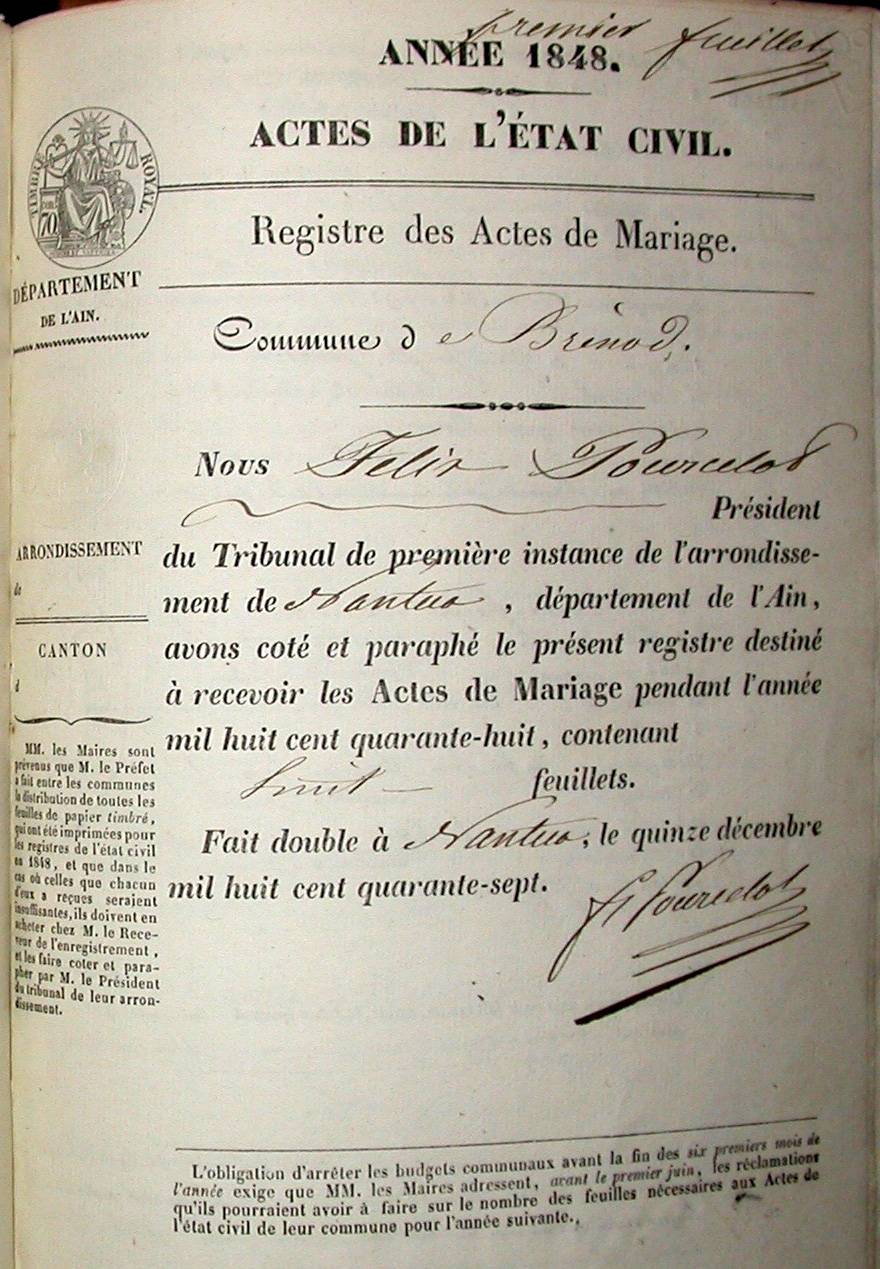 premier feuillet
ANNÉE 1848.
ACTES DE L'ÉTAT CIVIL.
TIMBRE ROYAL.
70
DÉPARTEMENT
DE L'AIN.
Registre des Actes de Mariage.
Commune de Brénod.
Nous Felix Pourcelot
Président
du Tribunal de première instance de l'arrondisse-
ment de Nantua, département de l'Ain,
avons coté et paraphé le présent registre destiné
à recevoir les Actes de Mariage pendant l'année
mil huit cent quarante-huit, contenant
huit feuillets.
Fait double à Nantua, le quinze décembre
mil huit cent quarante-sept.
f Pourcelot
ARRONDISSEMENT
de
CANTON
d
MM. les Maires sont
prévenus que M. le Préfet
a fait entre les communes
la distribution de toutes les
feuilles de papier timbré,
qui ont été imprimées pour
les registres de l'état civil
en 1848, et que dans le
cas où celles que chacun
d'eux a reçues seraient
insuffisantes, ils doivent en
acheter chez M. le Rece-
veur de l'enregistrement,
et les faire coter et para-
pher par M. le Président
du tribunal de leur arron-
dissement.
L'obligation d'arrêter les budgets communaux avant la fin des six premiers mois de
l'année exige que MM. les Maires adressent, avant le premier juin, les réclamations
qu'ils pourraient avoir à faire sur le nombre des feuilles nécessaires aux Actes de
l'état civil de leur commune pour l'année suivante.